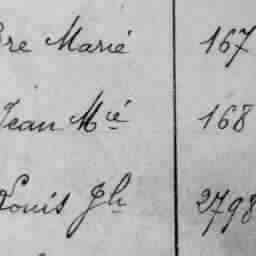 re Marié 167
Jean M.ié 168
Louis Jh 2798